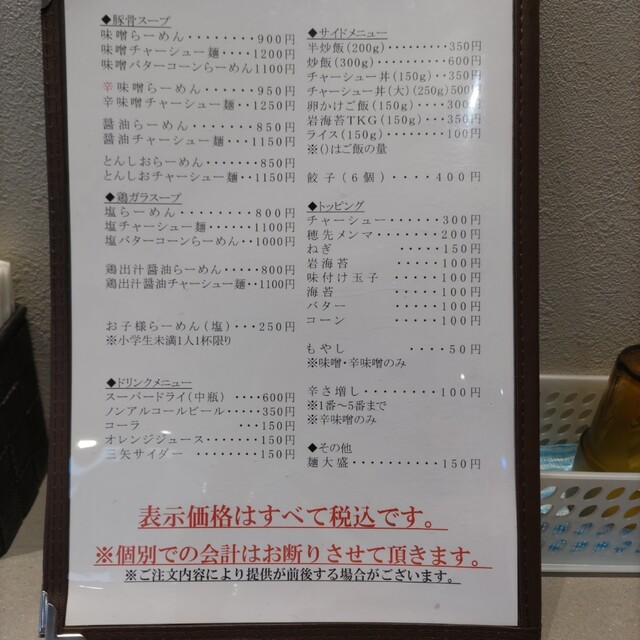 ◆豚骨スープ
味噌らーめん・・・・・・・・900円
味噌チャーシュー麺・・・・1200円
味噌バターコーンらーめん1100円
辛味噌らーめん・・・・・・・950円
辛味噌チャーシュー麺・・1250円
醤油らーめん・・・・・・・・850円
醤油チャーシュー麺・・・1150円
とんしおらーめん・・・・・・850円
とんしおチャーシュー麺・・1150円
◆鶏ガラスープ
塩らーめん・・・・・・・・・800円
塩チャーシュー麺・・・・・1100円
塩バターコーンらーめん・・1000円
鶏出汁醤油らーめん・・・・・800円
鶏出汁醤油チャーシュー麺・・1100円
お子様らーめん(塩)・・・250円
※小学生未満1人1杯限り
◆ドリンクメニュー
スーパードライ(中瓶) ・・・・600円
ノンアルコールビール・・・・・350円
コーラ ・・・150円
オレンジジュース・・・・・・・150円
三矢サイダー ・・・・・・・・150円
◆サイドメニュー
半炒飯(200g)・・・・・・・・・350円
炒飯(300g)・・・・・・・・・・600円
チャーシュー丼(150g)・・350円
チャーシュー丼(大)(250g)500円
卵かけご飯(150g)・・・・300円
岩海苔TKG(150g)・・・・350円
ライス(150g)・・・・・・・・100円
※()はご飯の量
餃子(6個)・・・・400円
◆トッピング
チャーシュー・・・・・・300円
穂先メンマ・・・・・・・200円
ねぎ ・・・・・150円
岩海苔 ・・・・・100円
味付け玉子 ・・・・・100円
海苔 ・・・・・100円
バター ・・・・・100円
コーン ・・・・・100円
もやし ・・・・・50円
※味噌・辛味噌のみ
辛さ増し・・・・・・・・100円
※1番〜5番まで
※辛味噌のみ
◆その他
麺大盛・・・・・・・・・・150円
表示価格はすべて税込です。
※個別での会計はお断りさせて頂きます。
※ご注文内容により提供が前後する場合がございます。